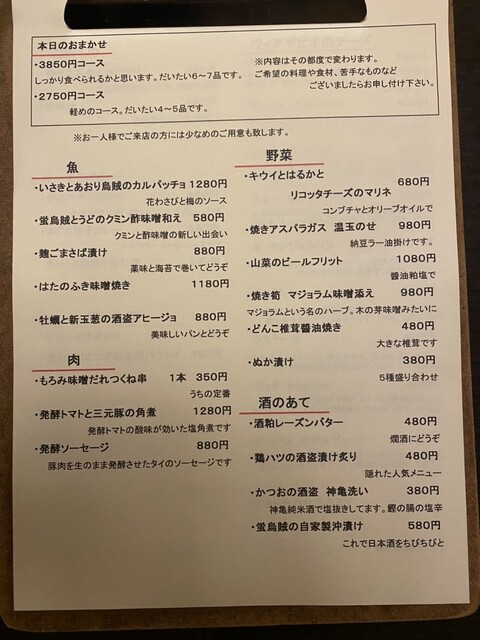 本日のおまかせ
・3850円コース
しっかり食べられるかと思います。だいたい6~7品です。
・2750円コース
軽めのコース。だいたい4~5品です。
※内容はその都度で変わります。
ご希望の料理や食材、苦手なものなど
ございましたらお申し付け下さい。
※お一人様でご来店の方には少なめのご用意も致します。
魚
・いさきとあおり烏賊のカルパッチョ 1280円
花わさびと梅のソース
・蛍烏賊とうどのクミン酢味噌和え 580円
クミンと酢味噌の新しい出会い
・麹ごまさば漬け 880円
薬味と海苔で巻いてどうぞ
・はたのふき味噌焼き 1180円
・牡蠣と新玉葱の酒盗アヒージョ 880円
美味しいパンとどうぞ
肉
・もろみ味噌だれつくね串 1本 350円
うちの定番
・発酵トマトと三元豚の角煮 1280円
発酵トマトの酸味が効いた塩角煮です
・発酵ソーセージ 880円
豚肉を生のまま発酵させたタイのソーセージです
野菜
・キウイとはるかと
リコッタチーズのマリネ 680円
コンブチャとオリーブオイルで
・焼きアスパラガス 温玉のせ 980円
納豆ラー油掛けです。
・山菜のビールフリット 1080円
醤油粕塩で
・焼き筍 マジョラム味噌添え 980円
マジョラムという名のハーブ。木の芽味噌みたいに
・どんこ椎茸醤油焼き 480円
大きな椎茸です
・ぬか漬け 380円
5種盛り合わせ
酒のあて
・酒粕レーズンバター 480円
燗酒にどうぞ
・鶏ハツの酒盗漬け炙り 480円
隠れた人気メニュー
・かつおの酒盗 神亀洗い 380円
神亀純米酒で塩抜きしてます。鰹の腸の塩辛
・蛍烏賊の自家製沖漬け 580円
これで日本酒をちびちびと